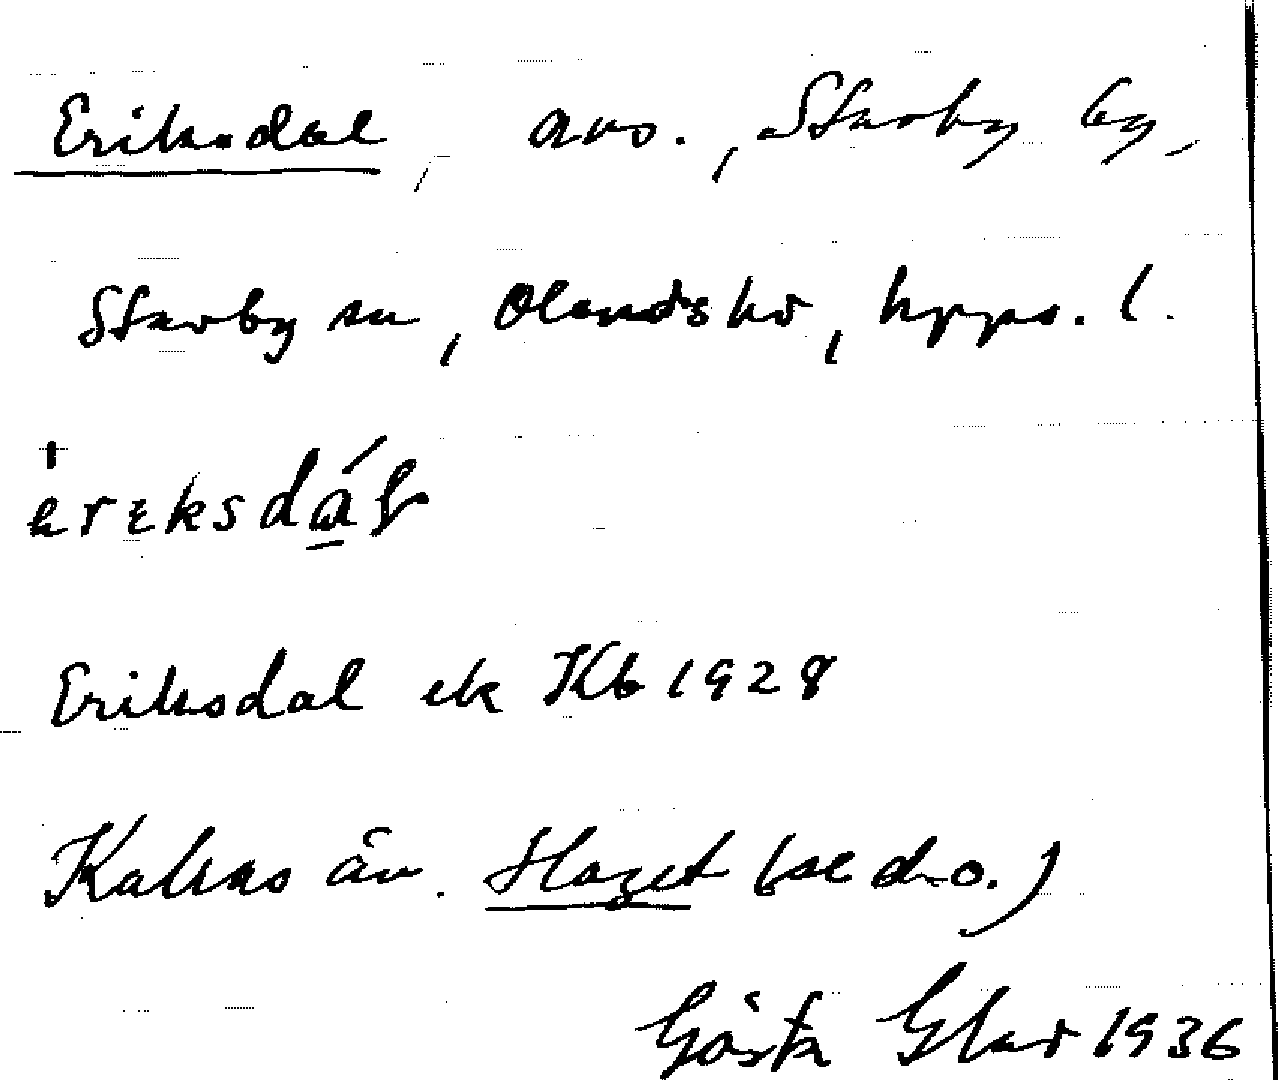 Eriksdal, avs., Starby by,
Starby sn, Olands hd, Upps. l.
èrɛksdá̱ɫ
Eriksdal ek Kb 1928
Kallas äv. Haget (se d.o.)
Gösta Glad 1936